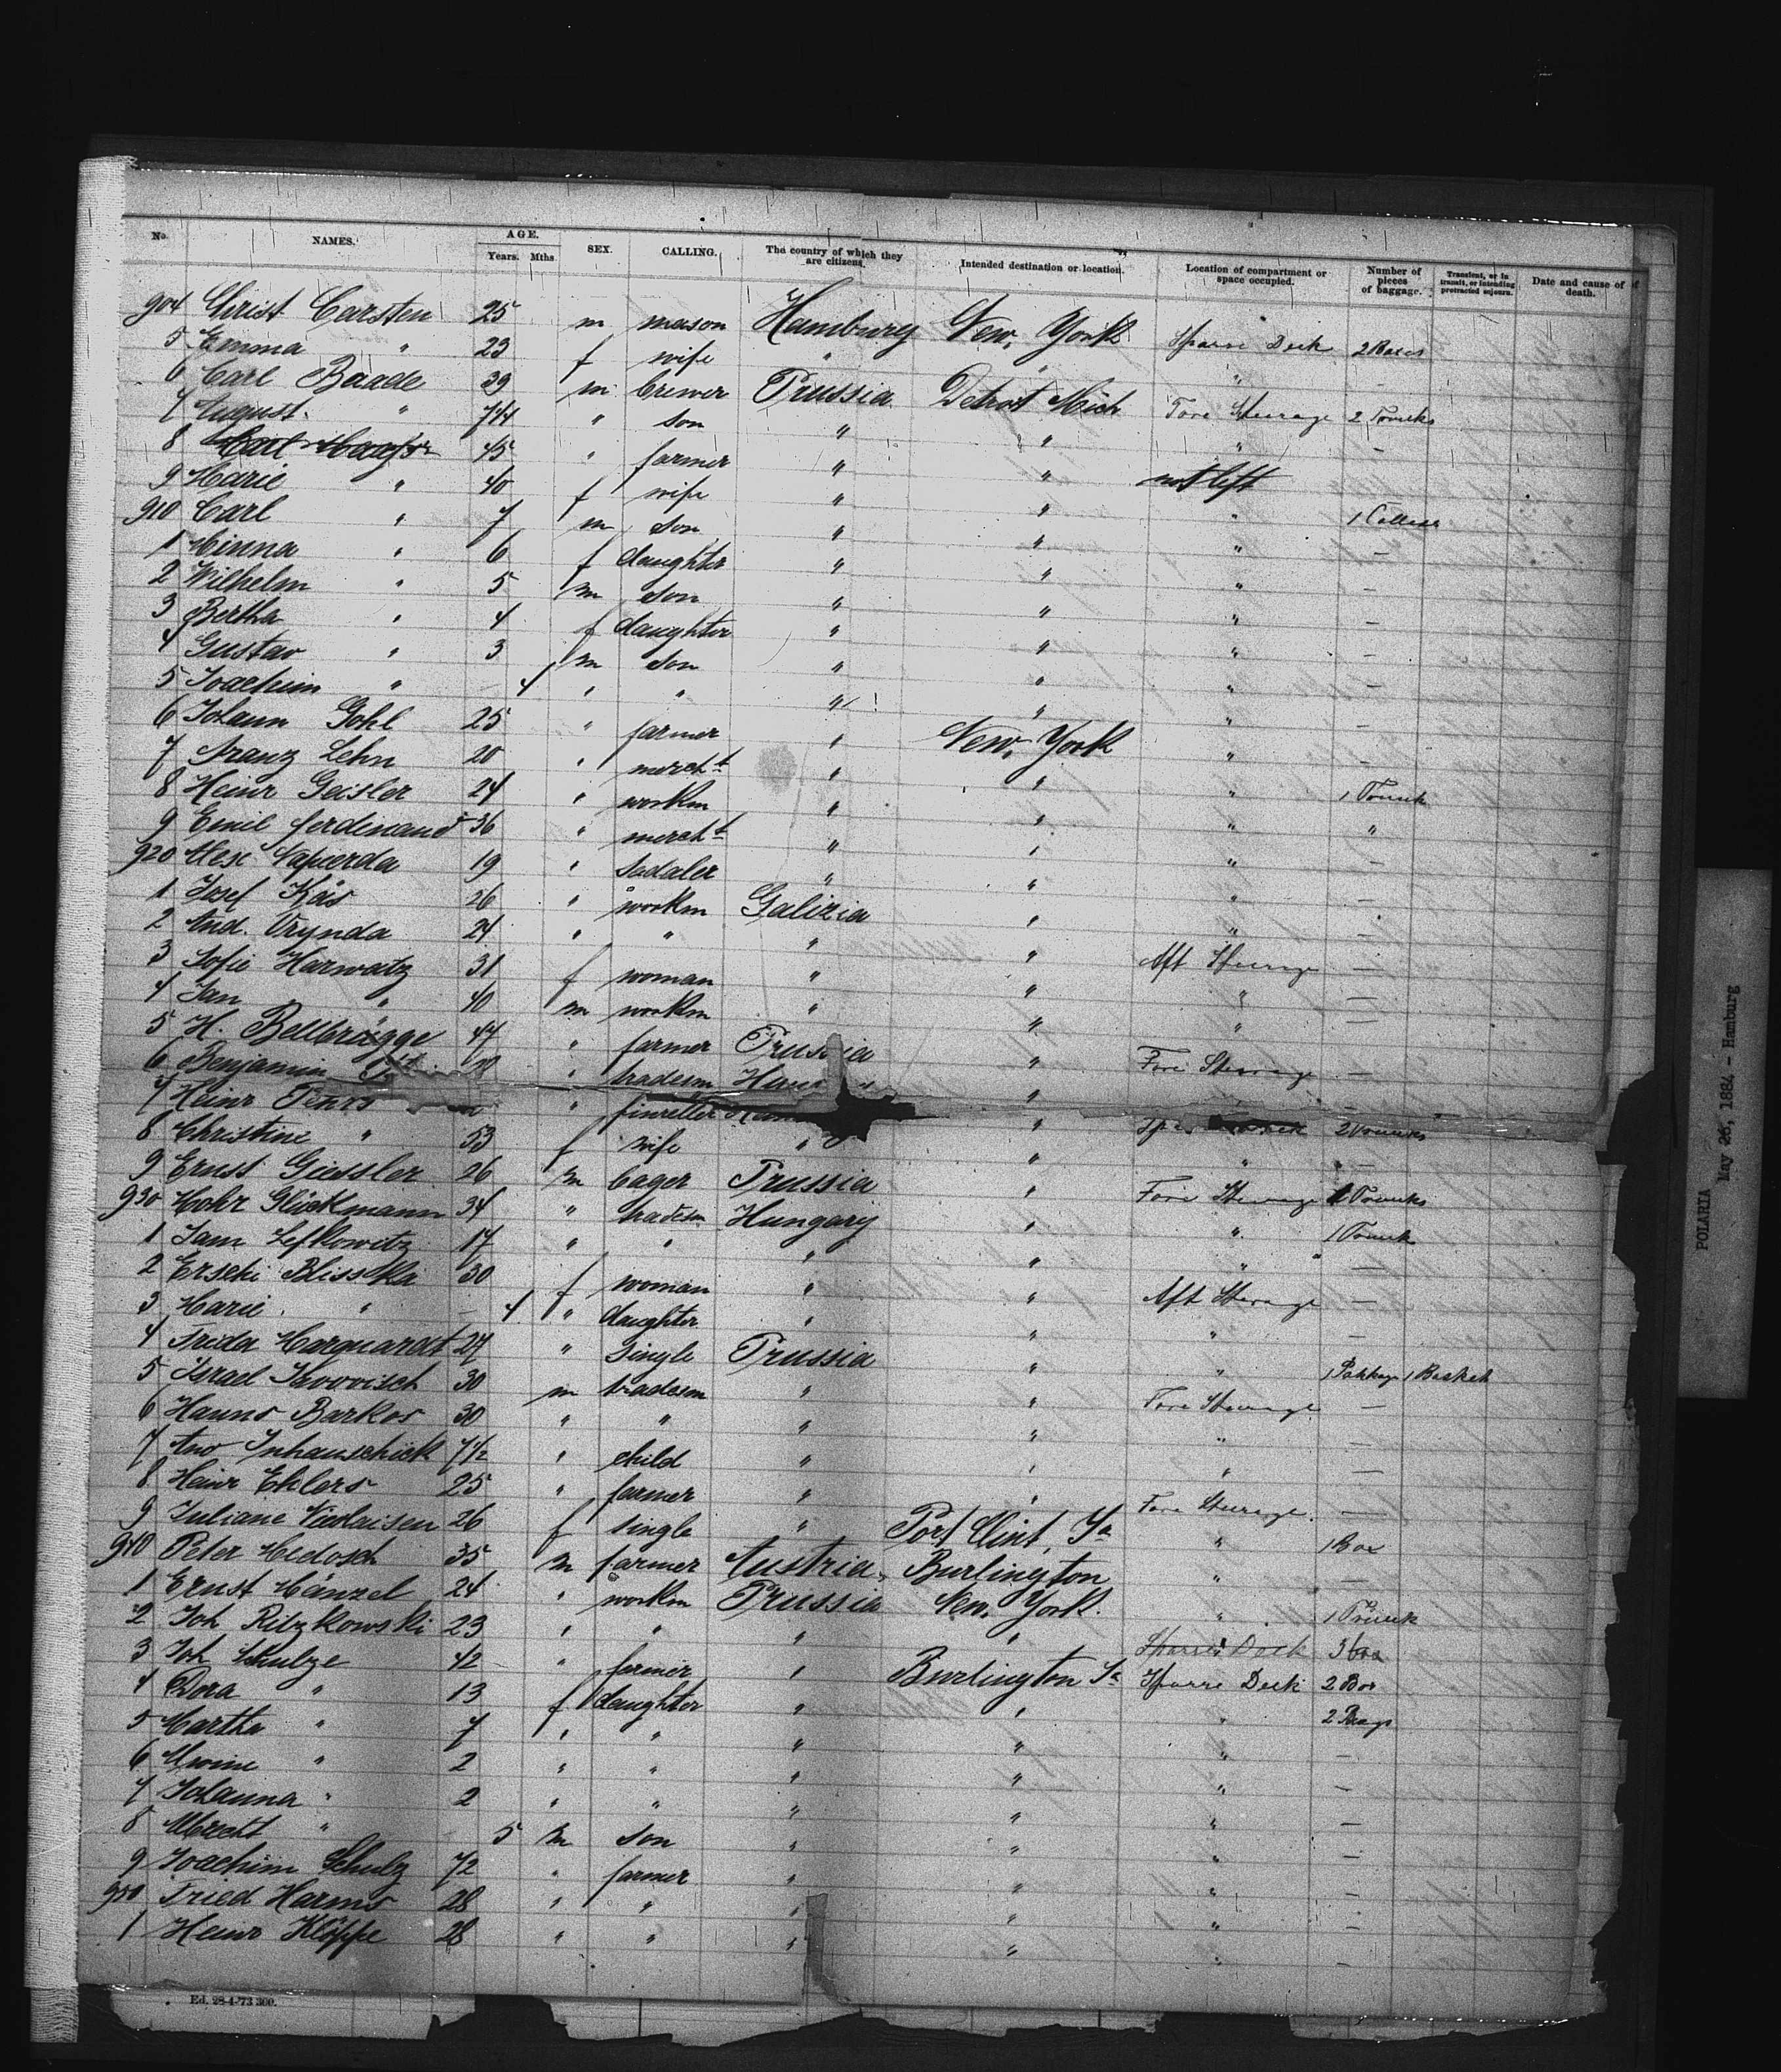 No. NAMES. AGE. Years. Mths. SEX. CALLING. The country of which they are citizens. Intended destination or location. Location of compartment or space occupied. Number of pieces of baggage. Transient, or in transit, or intending protracted sojourn. Date and cause of death.
904 Christ Carsten 25 m mason Hamburg New York Sparre Deck 2 Boxes
5 Emma " 23 f wife " " " —
6 Carl Baade 39 m brewer Prussia Detroit Mich Fore Steerage 2 Trunks
7 August " 7 " son " " " —
8 Carl 45 " farmer " " not left
9 Marie " 40 f wife " " "
910 Carl " 7 m son " " " —
1 Minna " 6 f daughter " " " —
2 Wilhelm " 5 m son " " " —
3 Bertha " 4 f daughter " " " —
4 Gustav " 3 m son " " " —
5 Joachim " — 4 " " " " "
6 Johann Gohl 25 " farmer " New York " —
7 Franz Lehn 20 " mercht " " " 1 Trunk
8 Heinr Geisler 24 " workm " " " "
9 Emil Ferdinand 36 " mercht " " " —
920 Alex 19 " Sadaler " " " —
1 Josef Kás 26 " workm Galizia " " —
2 And. Vrynda 24 " " " " Aft Steerage —
3 Sofie Harwatz 31 f woman " " " —
4 Jan " 40 m workm " " "
5 H. Bellbrügge 44 " farmer Prussia " Fore Steerage —
6 Benjamin " tradesm "
7 Heinr " " 2 Trunks
8 Christine " 53 f wife " " " —
9 Ernst Giessler 26 m Prussia " Fore Steerage Trunks
930 Mohr Glückmann 34 " tradesm Hungary " " 1 Trunk
1 Sam Lefkowitz 17 " " " " " —
2 Erschi Blisska 30 f woman " " Aft Steerage —
3 Marie " — 4 " daughter " " " —
4 Frieda Marquardt 27 " single Prussia " " 1 Pakkage 1 Basket
5 Israel 30 m tradesm " " Fore Steerage —
6 Hanns Barkos 30 " " " " " —
7 7 1/2 " child " " " —
8 Heinr Ehlers 25 " farmer " " Fore Steerage —
9 Juliane Nicolaisen 26 f single " Port Clint, Ja " 1 Box
940 Peter Medosch 35 m farmer Austria Burlington " —
1 Ernst Hänzel 24 " workm Prussia New York " 1 Trunk
2 Joh Ritzkowski 23 " " " " Sparre Deck 3 box
3 Joh Schulze 42 " farmer " Burlington Ja Sparre Deck 2 Box
4 Dora " 13 f daughter " " " 2 Bags
5 Martha " 7 " " " " " —
6 " 2 " " " " " —
7 Johanna " 2 " " " " " —
8 Albrecht " 5 m son " " " —
9 Joachim Schulz 72 " farmer " " " —
950 Fried Harms 28 " " " " " —
1 Heinr Klöppe 28 " " " " " —
Ed. 28-4-73 300.
POLARIA
May 26, 1884 - Hamburg